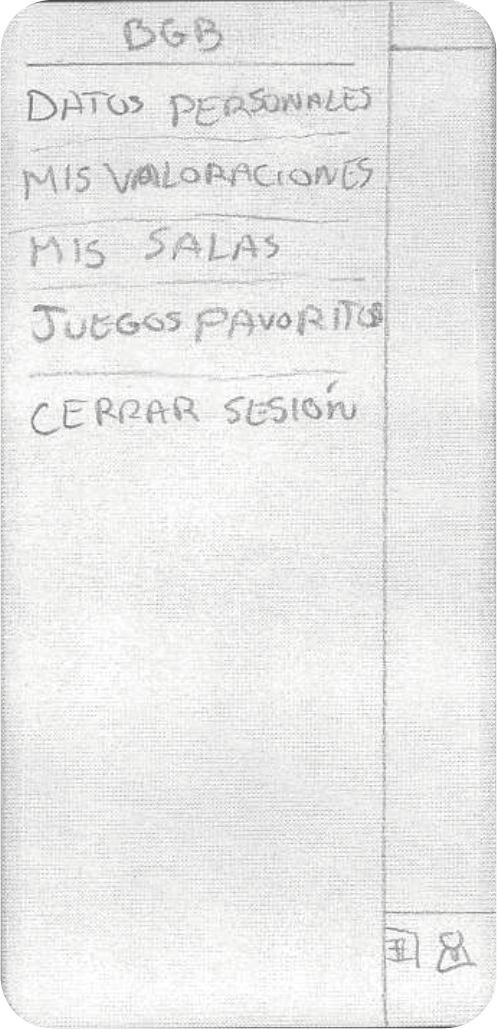 BGB
DATOS PERSONALES
MIS VALORACIONES
MIS SALAS
JUEGOS FAVORITOS
CERRAR SESIÓN